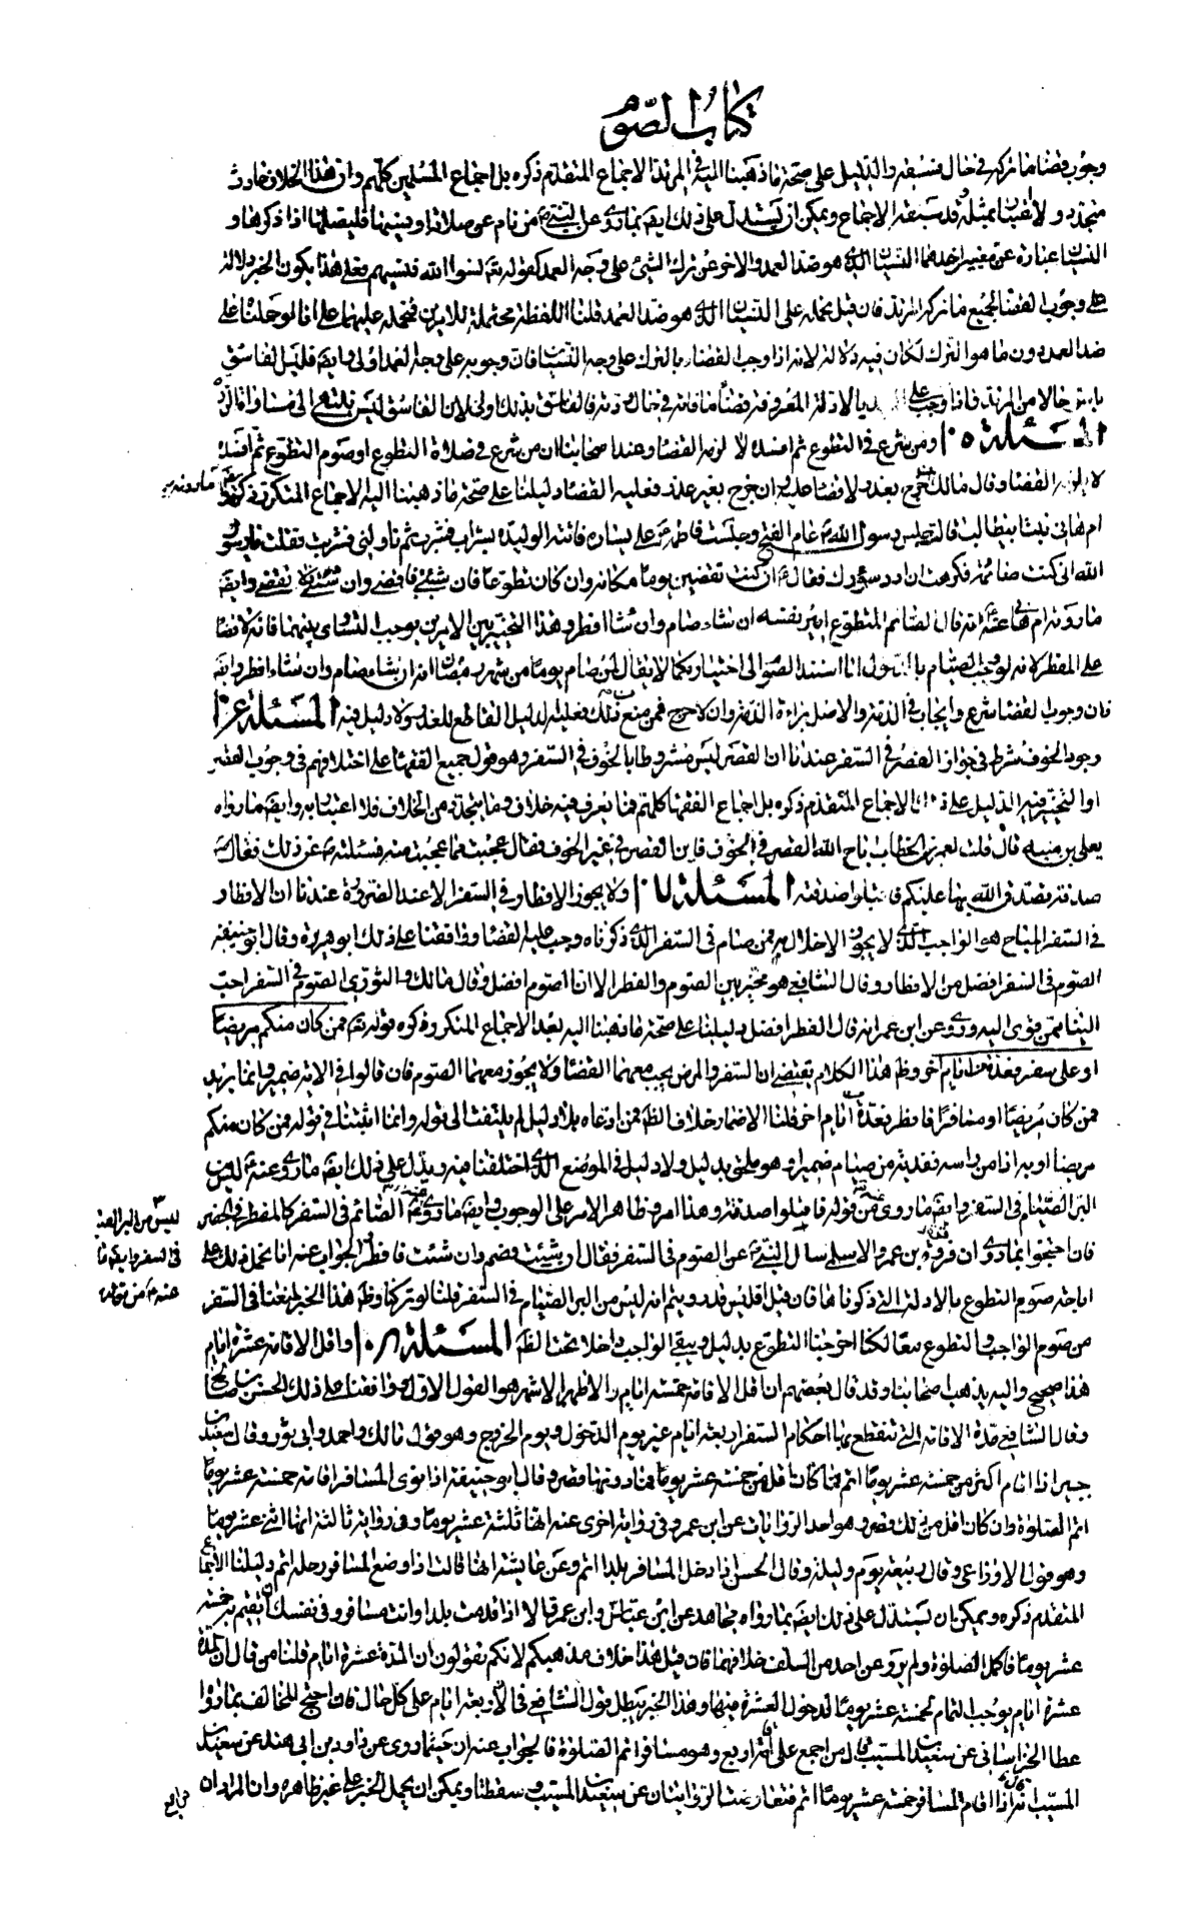 كتاب الصوم
وجوب قضاء ما تركه في حال فسقه والدليل على صحة ما ذهبنا اليه في المرتد الاجماع المتقدم ذكره بل اجماع المسلمين كلهم وان هذا الخلاف حادث
متجدد ولا اعتبار بمثله وقد سبقه الاجماع ويمكن ان يستدل على ذلك ايضا بما روى عن النبي ص من نام عن صلاة او نسيها فليصلها اذا ذكرها و
النسيان عبارة عن معنيين احدهما النسيان الذي هو ضد العمد والاخر عن ترك الشئ على وجه العمد كقوله تعالى نسوا الله فنسيهم فعلى هذا يكون الخبر دلالة
على وجوب القضاء لجميع ما تركه المرتد فان قيل نحمله على النسيان الذي هو ضد العمد قلنا اللفظة محتملة للامرين فنحمله عليهما على انا لو حملنا على
ضد العمد دون ما هو الترك لكان فيه دلالة لانه اذا وجب القضاء بالترك على وجه النسيان فان وجوبه على وجه العمد اولى وايضا فليس الفاسق
باسوء حالا من المرتد فاذا وجب على المرتد بالادلة المعروفة قضاء ما فاته في حال ردته فالفاسق بذلك اولى لان الفاسق ليس
المسئلة ١٠٥ ومن شرع في التطوع ثم افسده لا يلزمه القضاء وعند اصحابنا ان من شرع في صلاة التطوع او صوم التطوع ثم افسده
لا يلزمه القضاء وقال مالك ان خرج بعذر فلا قضاء عليه وان خرج بغير عذر فعليه القضاء دليلنا على صحة ما ذهبنا اليه الاجماع المتكرر ذكره
ام هاني بنت ابي طالب قالت جلس رسول الله ص عام الفتح وجلست فاطمة ع على يساره فاتته الوليدة بشراب فشرب ثم ناولني فشربت فقلت يا رسول
الله اني كنت صائمة فكرهت ان ارد سؤرك فقال ان كنت تقضين يوما مكانه وان كان تطوعا فان شئت فاقضه وان شئت لا تقضه وايضا
ما روته ام هاني عنه ص انه قال الصائم المتطوع امير نفسه ان شاء صام وان شاء افطر وهذا التخيير بين الامرين يوجب التساوي بينهما فانه لا قضاء
على المفطر لانه لو وجب الصيام بالدخول لما استند الصوم الى اختياره كما لا يقال لمن صام يوما من شهر رمضان انه ان شاء صام وان شاء افطر وايضا
فان وجوب القضاء شرع وايجاب في الذمة والاصل براءة الذمة وان لا حرج فمن منع ذلك فعليه الدليل القاطع للعذر ولا دليل فيه المسئلة ١٠٦
وجود الخوف شرط في جواز القصر في السفر عندنا ان القصر ليس مشروطا بالخوف في السفر وهو قول جميع الفقهاء على اختلافهم في وجوب القصر
او التخيير فيه الدليل على ذلك الاجماع المتقدم ذكره بل اجماع الفقهاء كلهم فما يعرف فيه خلاف وما يتجدد من الخلاف فلا اعتبار به وايضا ما رواه
يعلى بن منيه قال قلت لعمر بن الخطاب اباح الله القصر في الخوف فاين القصر في غير الخوف فقال عجبت مما عجبت منه فسئلته ع عن ذلك فقال
صدقة تصدق الله بها عليكم فاقبلوا صدقته المسئلة ١٠٧ ولا يجوز الافطار في السفر الا عند الضرورة عندنا ان الافطار
في السفر المباح هو الواجب الذي لا يجوز الاخلال به فمن صام في السفر الذي ذكرناه وجب عليه القضاء ووافقنا على ذلك ابو هريرة وقال ابو حنيفة
الصوم في السفر افضل من الافطار وقال الشافعي هو مخير بين الصوم والفطر الا ان الصوم افضل وقال مالك والثوري الصوم في السفر احب
الينا ممن قوى اليه وروى عن ابن عمر انه قال الفطر افضل دليلنا على صحة ما ذهبنا اليه بعد الاجماع المتكرر ذكره قوله تعالى فمن كان منكم مريضا
او على سفر فعدة من ايام اخر وظاهر هذا الكلام يقتضي ان السفر والمرض يجب معهما القضاء ولا يجوز معهما الصوم فان قالوا في الاية ضمير وانما يريد
فمن كان مريضا او مسافرا فافطر فعدة من ايام اخر قلنا الاضمار خلاف الظاهر فمن ادعاه بلا دليل لم يلتفت الى قوله وانما اثبتنا في قوله فمن كان منكم
مريضا او به اذا من راسه ففدية من صيام ضميرا وهو فحلق بدليل ولا دليل في الموضع الذي اختلفنا فيه ويدل على ذلك ايضا ما روى عنه ع ليس من
البر الصيام في السفر وايضا ما روى عنه ع من قوله فاقبلوا صدقته وهذا امر وظاهر الامر على الوجوب وايضا ما روى عنه ع الصائم في السفر كالمفطر في الحضر
فان احتجوا بما روى ان فروة بن عمرو الاسلمي سال النبي ص عن الصوم في السفر فقال ان شئت فصم وان شئت فافطر الجواب عنه انا نحمل ذلك على
اباحة صوم التطوع بالادلة التي ذكرناها فان قيل افليس قد رويتم انه ليس من البر الصيام في السفر قلنا لو تركنا وظاهر هذا الخبر لمنعنا في السفر
من صوم الواجب والتطوع معا لكنا اخرجنا التطوع بدليل وبقي الواجب داخلا تحت الظاهر المسئلة ١٠٨ واقل الاقامة عشرة ايام
هذا صحيح واليه يذهب اصحابنا وقد قال بعضهم ان اقل الاقامة خمسة ايام والاظهر الاشهر هو القول الاول ووافقنا على ذلك الحسن بن صالح
وقال الشافعي مدة الاقامة التي تنقطع بها احكام السفر اربعة ايام غير يوم الدخول ويوم الخروج وهو قول مالك واحمد وابي ثور وقال سعيد بن
جبير اذا اقام اكثر من خمسة عشر يوما اتم فما كان اقل من خمسة عشر يوما فما دونها قصر وقال ابو حنيفة اذا نوى المسافر اقامة خمسة عشر يوما
اتم الصلوة وان كان اقل من ذلك قصر وهو احد الروايات عن ابن عمر وفي رواية اخرى عنه انها ثلثة عشر يوما وفي رواية ثالثة انها اثنى عشر يوما
وهو قول الاوزاعي وقال ربيعة يوم وليلة وقال الحسن اذا دخل المسافر بلدا اتم وعن عايشة انها قالت اذا وضع المسافر رحله اتم دليلنا الاجماع
المتقدم ذكره ويمكن ان يستدل على ذلك ايضا بما رواه مجاهد عن ابن عباس وابن عمر قالا اذا قدمت بلدا وانت مسافر وفي نفسك ان تقيم به خمسة
عشر يوما فاكمل الصلوة ولم يرو عن احد من السلف خلافهما فان قيل هذا خلاف مذهبكم لانكم تقولون ان المدة عشرة ايام قلنا من قال ان المدة
عشرة ايام يوجب التمام لخمسة عشر يوما لدخول العشرة فيها وهذا الخبر يبطل قول الشافعي في الاربعة ايام على كل حال فان احتج المخالف بما روا
عطا الخراساني عن سعيد بن المسيب قال من اجمع على اقامة اربع وهو مسافر اتم الصلوة فالجواب عنه ان خبرنا روى عن داود بن ابي هند عن سعيد بن
المسيب انه قال اذا اقام المسافر خمسة عشر يوما اتم فتعارضت الروايتان عن سعيد بن المسيب وسقطتا ويمكن ان يحمل الخبر على غير ظاهره وان المراد ان
ليس من البر الصيام
في السفر وايضا ما
عنه ع من قوله